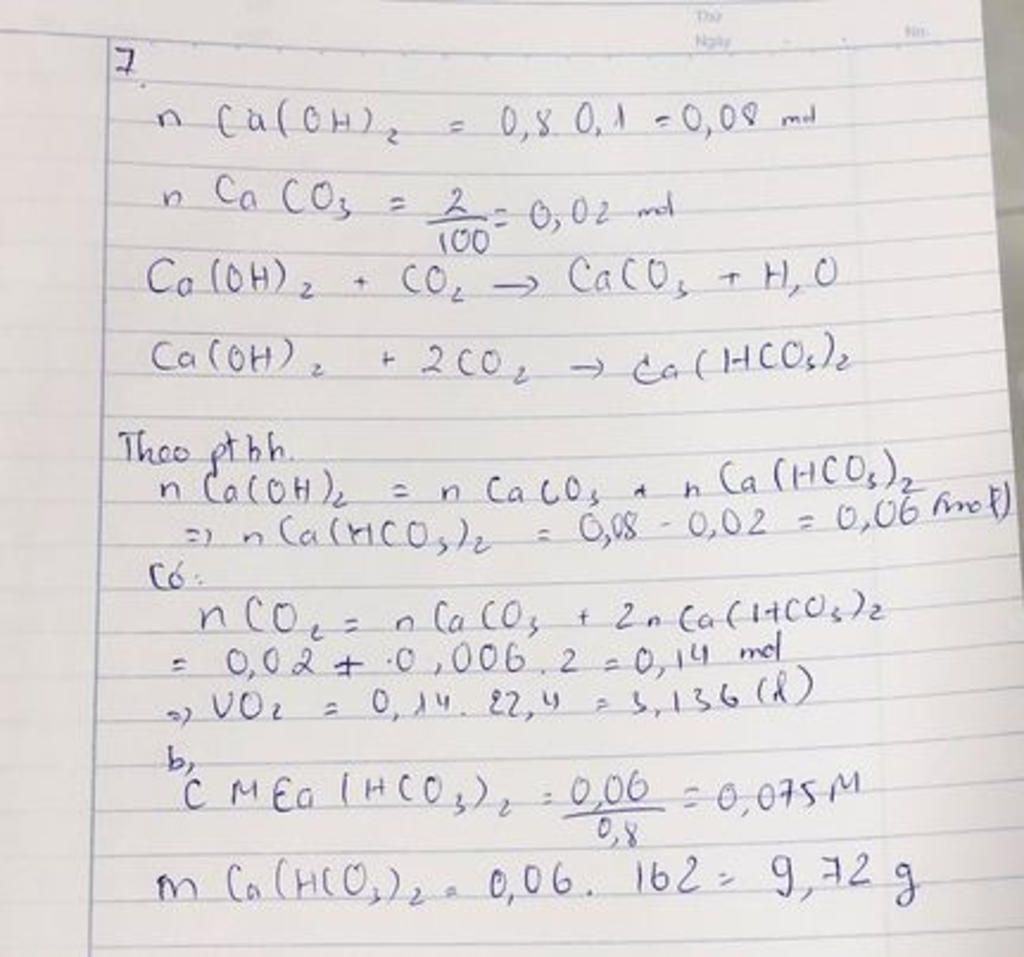 Thứ
Ngày
No.
7.
n Ca(OH)₂ = 0,8 0,1 = 0,08 mol
n CaCO₃ = 2/100 = 0,02 mol
Ca(OH)₂ + CO₂ → CaCO₃ + H₂O
Ca(OH)₂ + 2CO₂ → Ca(HCO₃)₂
Theo ptbh.
n Ca(OH)₂ = n CaCO₃ + n Ca(HCO₃)₂
=> n Ca(HCO₃)₂ = 0,08 - 0,02 = 0,06 (mol)
Có:
n CO₂ = n CaCO₃ + 2n Ca(HCO₃)₂
= 0,02 + 0,006 . 2 = 0,14 mol
=> VO₂ = 0,14 . 22,4 = 3,136 (l)
b,
C M Ca(HCO₃)₂ = 0,06/0,8 = 0,075M
m Ca(HCO₃)₂ = 0,06 . 162 = 9,72 g